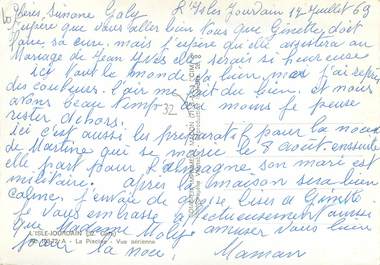 Chères Simone Galy L'Isle Jourdain 17 Juillet 69
J'espère que vous allez bien tous que Ginette doit
faire sa cure. mais j'espère qu'elle assistera au
Mariage de Jean Yves elle serais si heureuse
ici tout le monde va bien, moi j'ai repris
des couleurs. l'air me fait du bien. et nous
avons beau temps au moins je peuse
rester dehors.
ici c'est aussi les préparatif pour la noce
de Martine qui se marie le 8 août. ensuite
elle part pour l'Allemagne son mari est
militaire. après la maison sera bien
calme. J'envoie de grosse bises a Ginette
Je vous embrasse affectueusement aussi
que Madame Moly. amuser vous bien
pour la noce, Maman
32
L'ISLE-JOURDAIN (Gers)
La Piscine - Vue aérienne